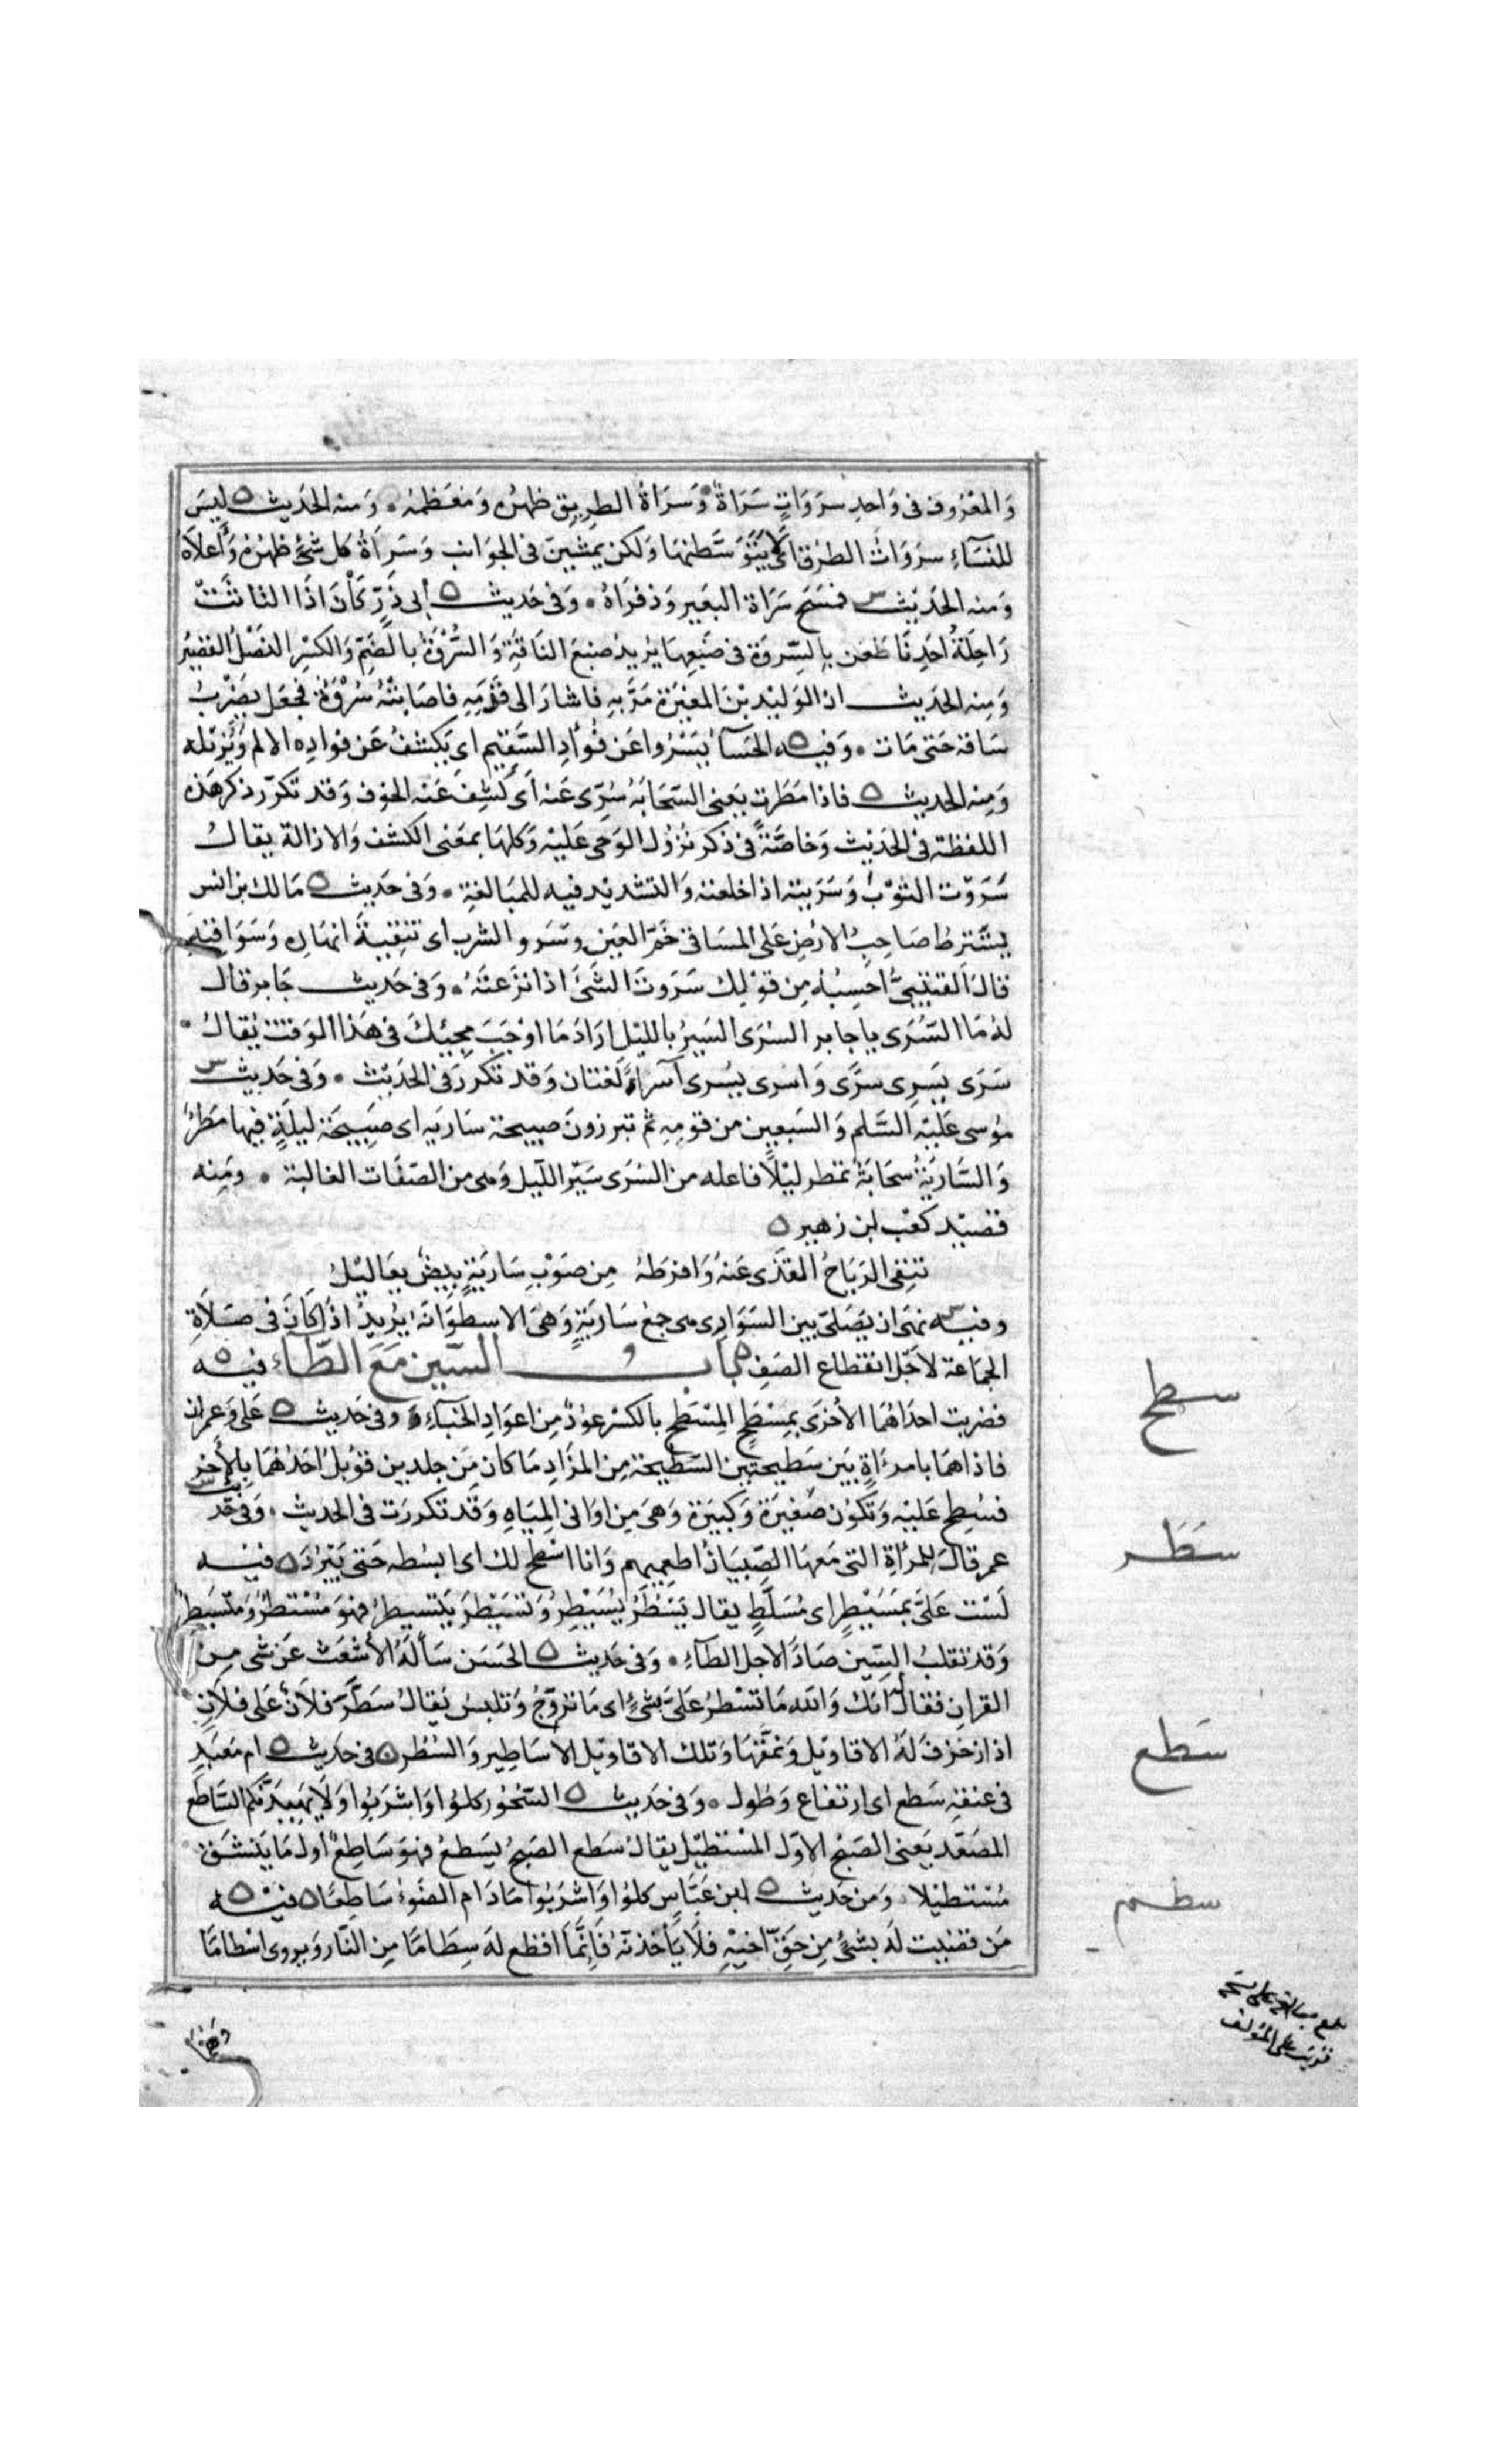 وَالمَعْرُوف فى وَاحِدِ سرَوَاتٍ سَرَاةٌ وَسَرَاةُ الطرِيق ظهرُه وَمُعظمُه ومنه الحَديث ه ليسَ
للنسَآءِ سرَوَاتُ الطرُق اى لا يَتَوَسَّطنهَا وَلكن يمشينَ فى الجوَانب وَسَرَاةُ كل شئٍ ظهرُهُ وَأعلاهُ
وَمنه الحَديث س فمسَح سَرَاة البَعير وَذفرَاهُ وَفى حَديث ه أبى ذَرٍّ كَانَ اذَا التاثتْ
رَاحِلةُ احَدِنَا طعَن بالسّروَة فى ضَبعِهَا يُريدُ ضبعَ النَاقَةِ وَالسُّرْوَةُ بالضَمِّ وَالكسْرِ النصْلُ القصِيرُ
وَمِنه الحَديث ان الوَليْد بْنَ المغيرَة مَرَّ بهِ فاشارَ الى قدَمِهِ فاصَابتهُ سُرْوَةٌ فجعَل يَضْربُ
سَاقه حَتى مَات وَفيه ه الحَسَآُ يَسْرُوا عَن فُؤادِ السَّقِيم اى يَكشفُ عَن فوادِه الالم وَيُزيله
وَمِنه الحديث ه فاذا مَطَرَت يَعنى السّحَابَة سُرِّى عَنه اَى كُشِفَ عَنه الخوْف وَقد تكرّر ذكر هَذه
اللفظة فى الحَدِيث وَخَاصَّةً فى ذكر نُزُول الوَحى عَليْه وَكلهَا بمعَنى الكشف وَالازالة يقالُ
سَرَوْت الثوْبَ وَسَرَيته اذا خلعته وَالتشديد فيه للمبَالغةِ وَفى حَديث ه مَالك بن انس
يشترط صَاحِبُ الارْضِ عَلى المسَاقى خَمّ العَين وسَرو الشرب اى تنقيَة انهَارِه وَسَوَاقيْه
قالَ القتيْبىُّ احسِبُهُ مِن قوْلِك سَرَوتَ الشَئَ اذا نزَعتَهُ وَفى حَديث جَابر قال
لهُ مَا السُّرَى يا جابر السُرَى السَيرُ بالليْل ارَادَ مَا اوْجَبَ مجيئكَ فى هَذا الوَقت يُقالُ
سَرَى يَسرِى سرًى وَاسرى يسْرى اسْرَاءً لغتان وَقد تكررَ فى الحَديْث وَفى حَديث س
مُوسى عَليْه السَّلم وَالسَبعين من قومِهِ ثم تبرزونَ صبيحة سَاريَه اى صَبيْحَة ليلَةٍ فيهَا مَطرٌ
وَالسَّاريَةُ سحَابَةٌ تمطر ليْلاً فاعله من السُرَى سَيْر اللّيل وَهى من الصّفَات الغالبة وَمِنه
قصيْد كعْب ابن زهير ه
تنفى الرّيَاحُ القذَى عَنهُ وَافرَطهُ مِن صَوْبِ سَارِيَةٍ بيضٌ يعَاليْلُ
وفيه س نهَى ان يُصَلّى بين السَوَارِى هى جمع سَاريَةٍ وَهىَ الاسطوَانَة يُريدُ اذَا كَانَ فى صَلاَةِ
الجمَاعة لاَجْل انقطاع الصَف بابُ السّين مَعَ الطّاء فيه ه
فضربت احدَاهُمَا الأخرَى بمِسْطَحٍ المِسْطَح بالكسْر عوْدٌ مِن اعوَادِ الخبَآءِ وفى حَديث ه عَلىّ وَعمران
فاذا همَا بامرَأةٍ بَين سَطيحتين السّطيحة مِن المزَادِ مَا كان مَن جلدين قوْبلَ احَدُهُمَا بالآخر
فسُطِح عَليْه وَتكوْن صَغيرَة وَكبيَرة وَهىَ مِن اوَانى المِيَاهِ وَقَد تكررَت فى الحديث وَفى حَديث س
عمر قالَ للمرْأةِ التى مَعهَا الصّبيَانُ اطعِميهم وَانا اسْطح لك اى ابسُطه حَتى يَبْرُدَ ه فيْه
لَسْت عَلىَّ بمُسَيْطِرٍ اى مُسَلَّطٍ يقال سَيْطَرَ يُسَيْطِرُ وَتسَيْطَرَ يَتسيطرُ فهوَ مُسَيْطرٌ وَمتسَيطرٌ
وَقد تقلبُ السّين صَادًا لاجل الطاَءِ وَفى حَديث ه الحَسَن سَألهُ الأشعَث عَن شى مِن
القران فقال انك وَالله مَا تسْطرُ عَلىَّ بشئٍ اى مَا تروّجُ وَتلبسُ يُقالُ سَطَّرَ فلاَنٌ عَلى فلاَنٍ
اذا زخرَفَ لهُ الاقاويْل وَنمَّقهَا وَتلك الاقاويْل الأسَاطِير وَالسُطُر ه فى حَديث ه ام مَعبَدٍ
فى عنقهِ سَطع اى ارتفاع وَطُول وَفى حَديث ه السَّحُوْر كلوُا وَاشرَبُوا وَلاَ يَهِيدَنّكم السَّاطع
المصَعّد يَعنى الصّبْحَ الاوّل المسْتطيْل يقالُ سَطع الصّبحُ يَسطعُ فهوَ سَاطِعٌ اوّل مَا يَنشَق
مُسْتطيْلاً وَمن حَديث ه ابن عَبَّاسٍ كلوُا وَاشرَبُوا مَادَام الضَوءُ سَاطِعًا ه فيْه ه
مَن قضيْت لَه بشئٍ مِن حَقِّ اخيْهِ فلاَ يَأخذنّهُ فَانَّمَا اقطع لهَ سِطَامًا مِن النّار وَيروى اسْطامًا
سطح
سَطَر
سَطع
سطم